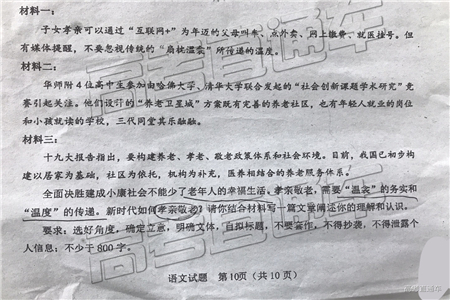 材料一：
子女孝亲可以通过“互联网+”为年迈的父母叫车、点外卖、网上缴费、就医挂号。但
有媒体提醒，不要忽视传统的“扇枕温衾”所传递的温度。
材料二：
华师附4位高中生参加由哈佛大学、清华大学联合发起的“社会创新课题学术研究”竞
赛引起关注。他们设计的“养老卫星城”方案既有完善的养老社区，也有年轻人就业的岗位
和小孩就读的学校，三代同堂其乐融融。
材料三：
十九大报告指出，要构建养老、孝老、敬老政策体系和社会环境。目前，我国已初步构
建以居家为基础，社区为依托，机构为补充，医养相结合的养老服务体系。
全面决胜建成小康社会不能少了老年人的幸福生活。孝亲敬老，需要“温衾”的务实和
“温度”的传递。新时代如何孝亲敬老？请你结合材料写一篇文章阐述你的理解和认识。
要求：选好角度，确定立意，明确文体，自拟标题，不要套作，不得抄袭，不得泄露个
人信息；不少于800字。
语文试题 第10页（共10页）
高考直通车
高考直通车
高考直通车